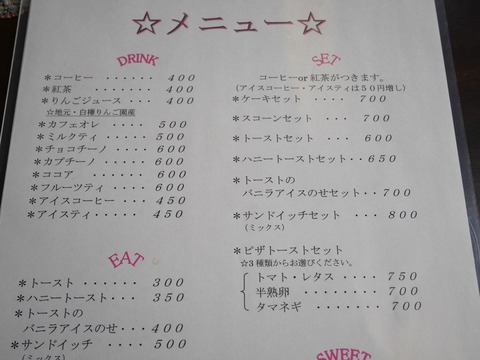 ☆メニュー☆
DRINK
＊コーヒー ・・・・・・ 400
＊紅茶 ・・・・・・・ 400
＊りんごジュース ・・・ 400
☆地元・白樺りんご園産
＊カフェオレ ・・・・ 500
＊ミルクティ ・・・・・ 500
＊チョコチーノ ・・・・ 600
＊カプチーノ ・・・・・ 600
＊ココア ・・・・・・ 600
＊フルーツティ ・・・・ 600
＊アイスコーヒー ・・・ 450
＊アイスティ ・・・・・ 450
EAT
＊トースト ・・・・・・ 300
＊ハニートースト・・・ 350
＊トーストの
バニラアイスのせ・・ 400
＊サンドイッチ ・・・・ 500
(ミックス)
SET
コーヒーor 紅茶がつきます。
(アイスコーヒー・アイスティは50円増し)
＊ケーキセット ・・・・ 700
＊スコーンセット ・・・ 700
＊トーストセット ・・・ 600
＊ハニートーストセット・・650
＊トーストの
バニラアイスのせセット・・700
＊サンドイッチセット ・・・ 800
(ミックス)
＊ピザトーストセット
☆3種類からお選びください。
トマト・レタス ・・・・ 750
半熟卵 ・・・・・・・・ 700
タマネギ ・・・・・・・ 700
SWEET